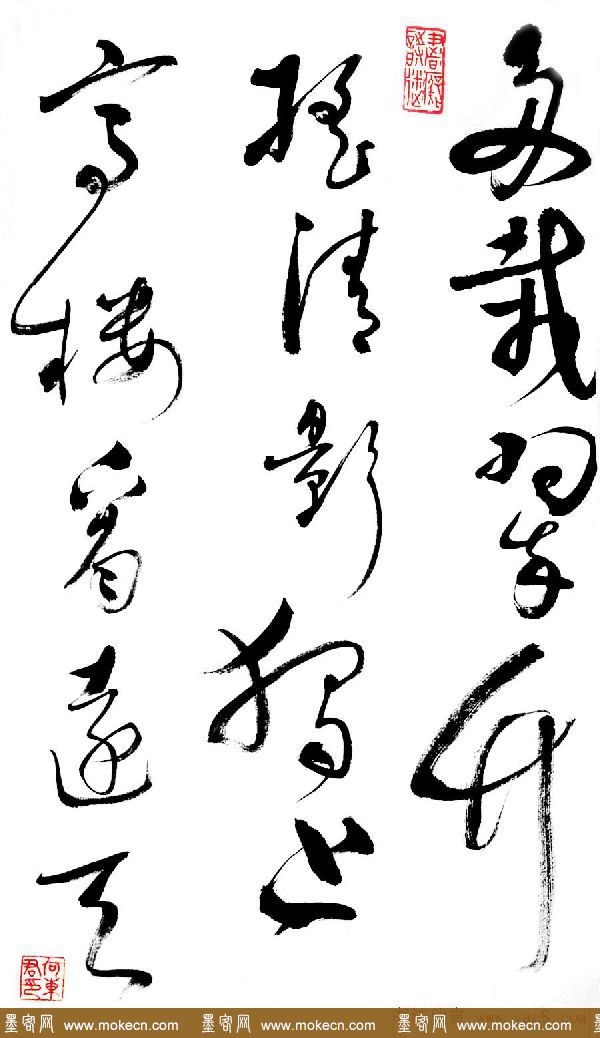 多栽翠竹
摇清影独上
高楼看远天
何东君印
墨客网 www.mokecn.com 墨客网 www.mokecn.com 墨客网 www.mokecn.com